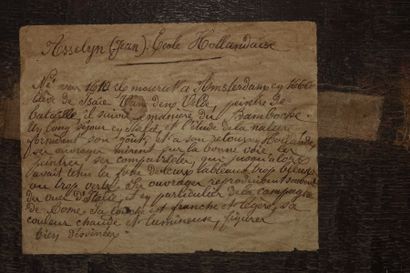 Asselyn (Jean) École Hollandaise
Né vers 1610 il mourut a Amsterdam en 1660
élève de Isaïe Van den Velde, peintre de
bataille, il suivit la manière du Bamboche
un long séjour en Italie et l'étude de la nature
formèrent son goût, et a son retour en Hollande
ses ouvrages mirent sur la bonne voie les
peintres ses compatriotes, qui jusqu'alors
avait tenu le fond de leurs tableaux trop bleus
ou trop verts. Ses ouvrages reproduisent souvent
des vues d'Italie, et en particulier de la campagne
de Rome sa touche est franche et légère, sa
couleur chaude et lumineuse, figures
bien dessinées